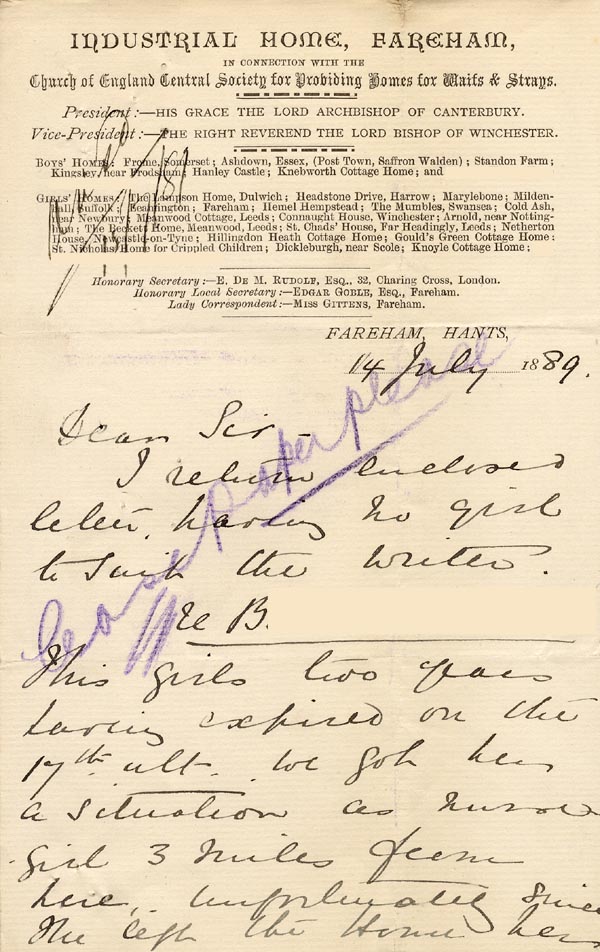 INDUSTRIAL HOME, FAREHAM,
IN CONNECTION WITH THE
Church of England Central Society for Providing Homes for Waifs & Strays.
President:—HIS GRACE THE LORD ARCHBISHOP OF CANTERBURY.
Vice-President:—THE RIGHT REVEREND THE LORD BISHOP OF WINCHESTER.
BOYS' HOMES: Frome, Somerset; Ashdown, Essex, (Post Town, Saffron Walden); Standon Farm;
Kingsley, near Frodsham; Hanley Castle; Knebworth Cottage Home; and
GIRLS' HOMES:—The Lampson Home, Dulwich; Headstone Drive, Harrow; Marylebone; Milden-
hall, Suffolk; Leamington; Fareham; Hemel Hempstead; The Mumbles, Swansea; Cold Ash,
near Newbury; Meanwood Cottage, Leeds; Connaught House, Winchester; Arnold, near Notting-
ham; The Beckett Home, Meanwood, Leeds; St. Chads' House, Far Headingly, Leeds; Netherton
House, Newcastle-on-Tyne; Hillingdon Heath Cottage Home; Gould's Green Cottage Home:
St. Nicholas' Home for Crippled Children; Dickleburgh, near Scole; Knoyle Cottage Home;
Honorary Secretary:—E. DE M. RUDOLF, ESQ., 32, Charing Cross, London.
Honorary Local Secretary:—EDGAR GOBLE, ESQ., Fareham.
Lady Correspondent:—MISS GITTENS, Fareham.
FAREHAM, HANTS,
14 July 1889.
Case paper please
Dear Sir—
I return enclosed
letter, having no girl
to suit the writer.
Re B.
This girls two years
having expired on the
17th ult. we got her
a situation as nurse
girl 3 miles from
here, unfortunately since
she left the Home her